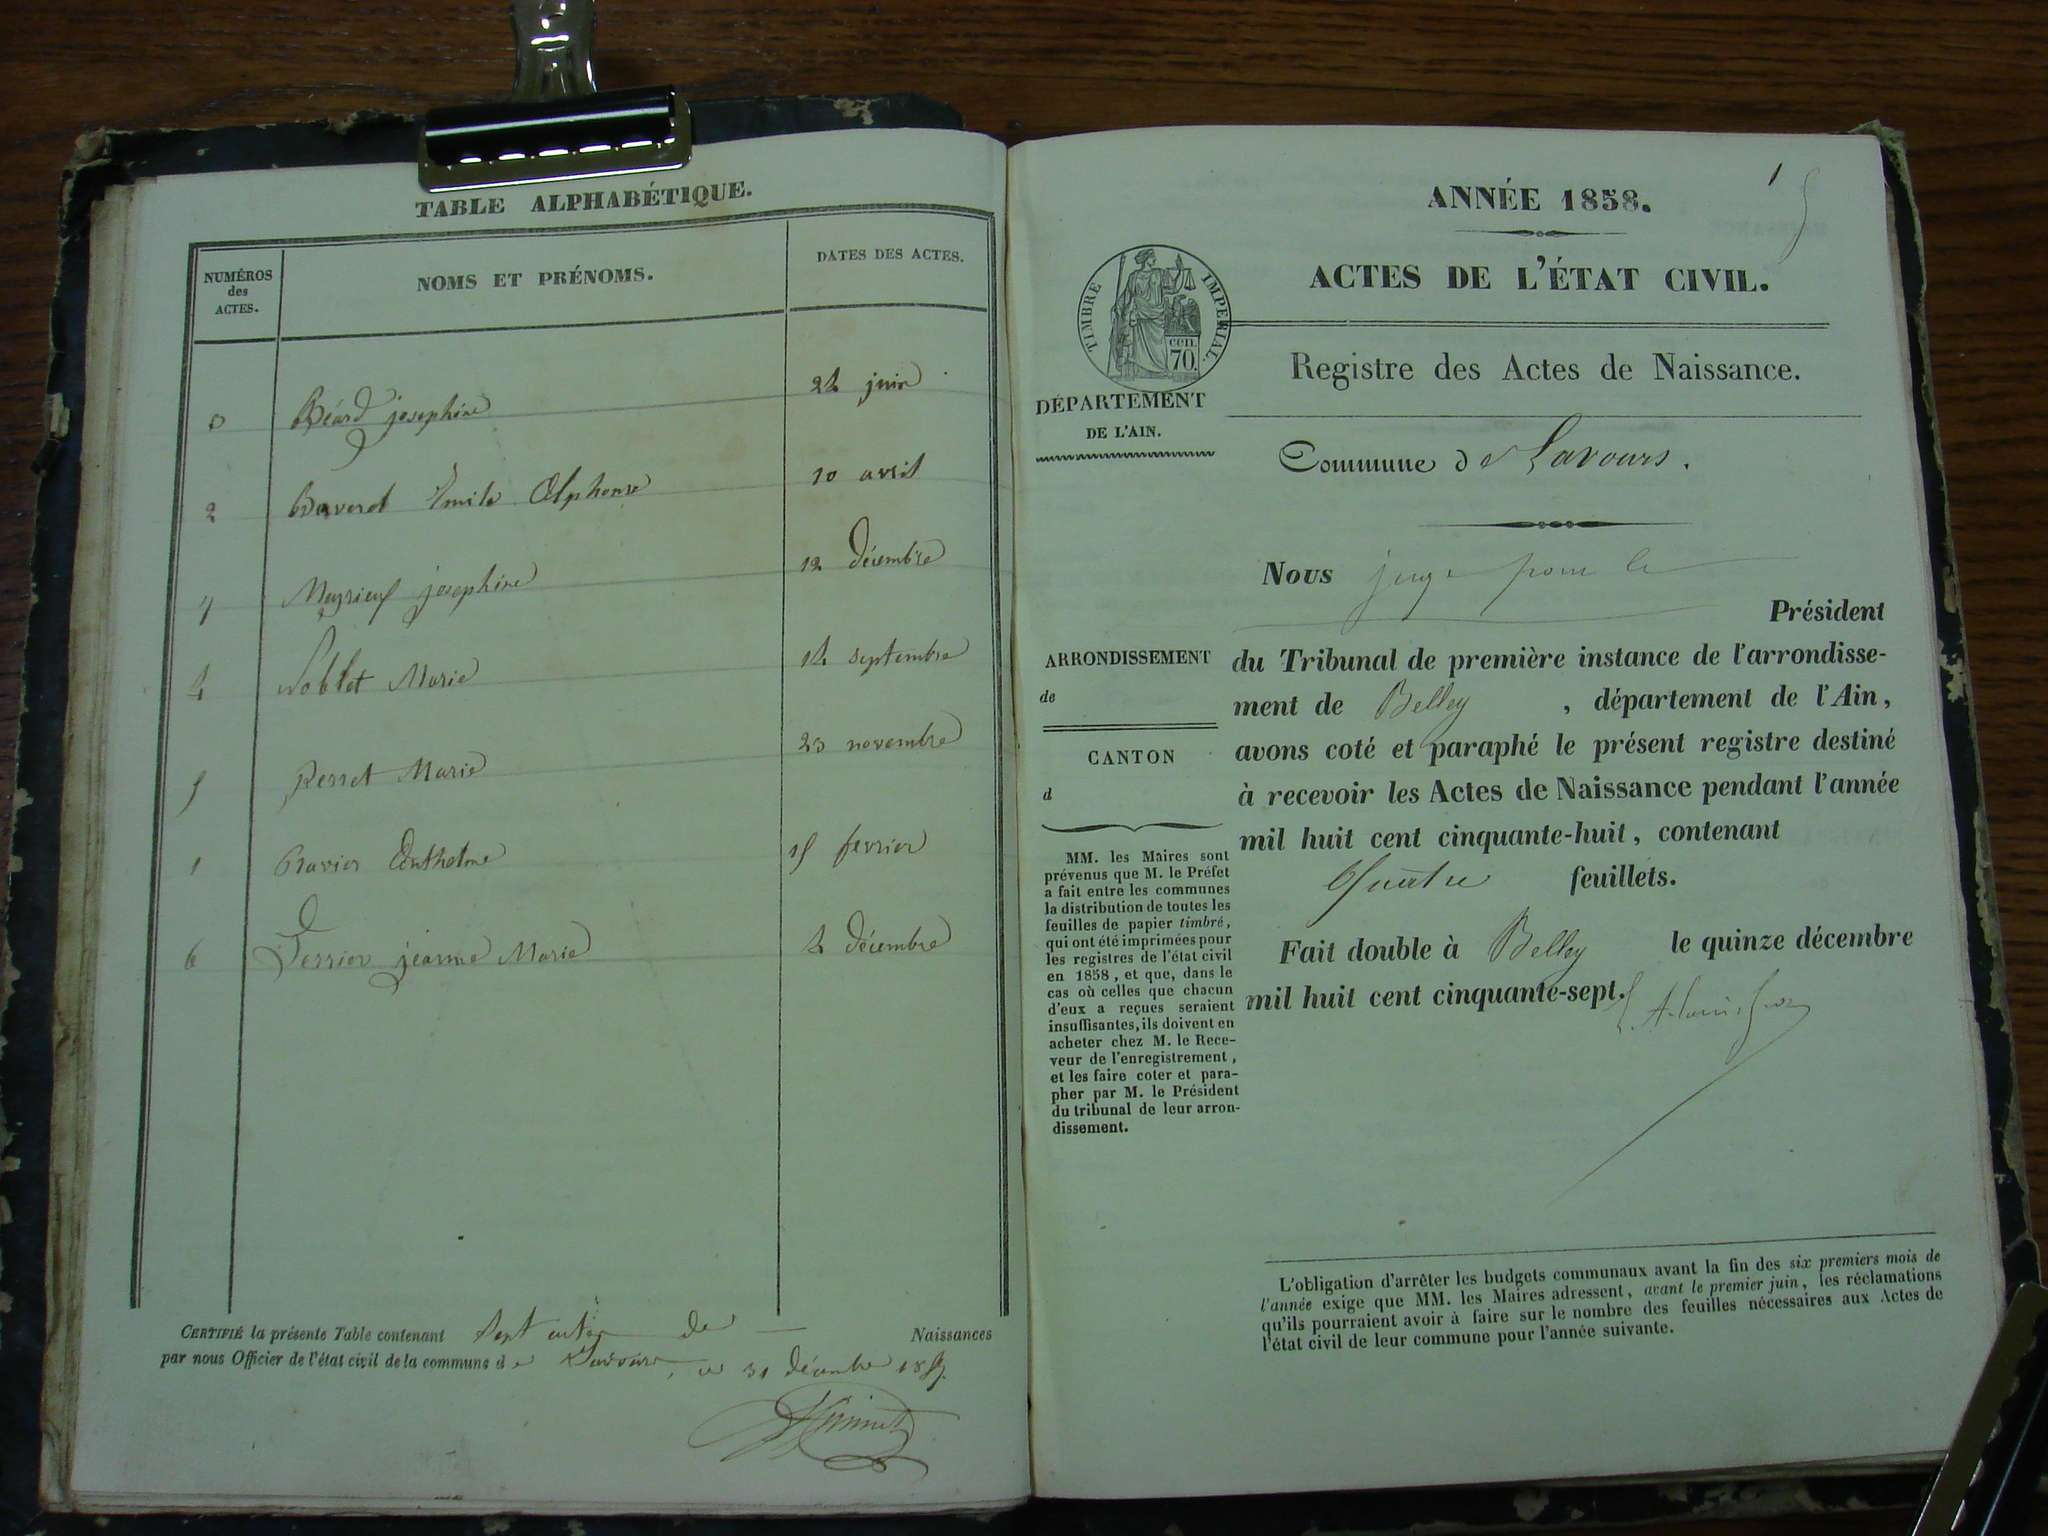 TABLE ALPHABÉTIQUE.
NUMÉROS des ACTES.
NOMS ET PRÉNOMS.
DATES DES ACTES.
3 Béard josephine 24 juin
2 Emile Alphonse 10 avril
7 josephine 12 décembre
4 Noblet Marie 14 septembre
5 Perret Marie 23 novembre
1 Anthelme 15 fevrier
6 jeanne Marie 4 décembre
CERTIFIÉ la présente Table contenant sept actes de Naissances
par nous Officier de l'état civil de la commune de Lavours, ce 31 décembre 1857.
1
5
ANNÉE 1858.
ACTES DE L'ÉTAT CIVIL.
TIMBRE IMPERIAL.
cen. 70.
Registre des Actes de Naissance.
DÉPARTEMENT
DE L'AIN.
Commune de Lavours.
Nous juge pour le
Président
ARRONDISSEMENT
de
CANTON
d
du Tribunal de première instance de l'arrondisse-
ment de Belley , département de l'Ain,
avons coté et paraphé le présent registre destiné
à recevoir les Actes de Naissance pendant l'année
mil huit cent cinquante-huit, contenant
Quatre feuillets.
Fait double à Belley le quinze décembre
mil huit cent cinquante-sept.
MM. les Maires sont
prévenus que M. le Préfet
a fait entre les communes
la distribution de toutes les
feuilles de papier timbré,
qui ont été imprimées pour
les registres de l'état civil
en 1858, et que, dans le
cas où celles que chacun
d'eux a reçues seraient
insuffisantes, ils doivent en
acheter chez M. le Rece-
veur de l'enregistrement,
et les faire coter et para-
pher par M. le Président
du tribunal de leur arron-
dissement.
L'obligation d'arrêter les budgets communaux avant la fin des six premiers mois de
l'année exige que MM. les Maires adressent, avant le premier juin, les réclamations
qu'ils pourraient avoir à faire sur le nombre des feuilles nécessaires aux Actes de
l'état civil de leur commune pour l'année suivante.